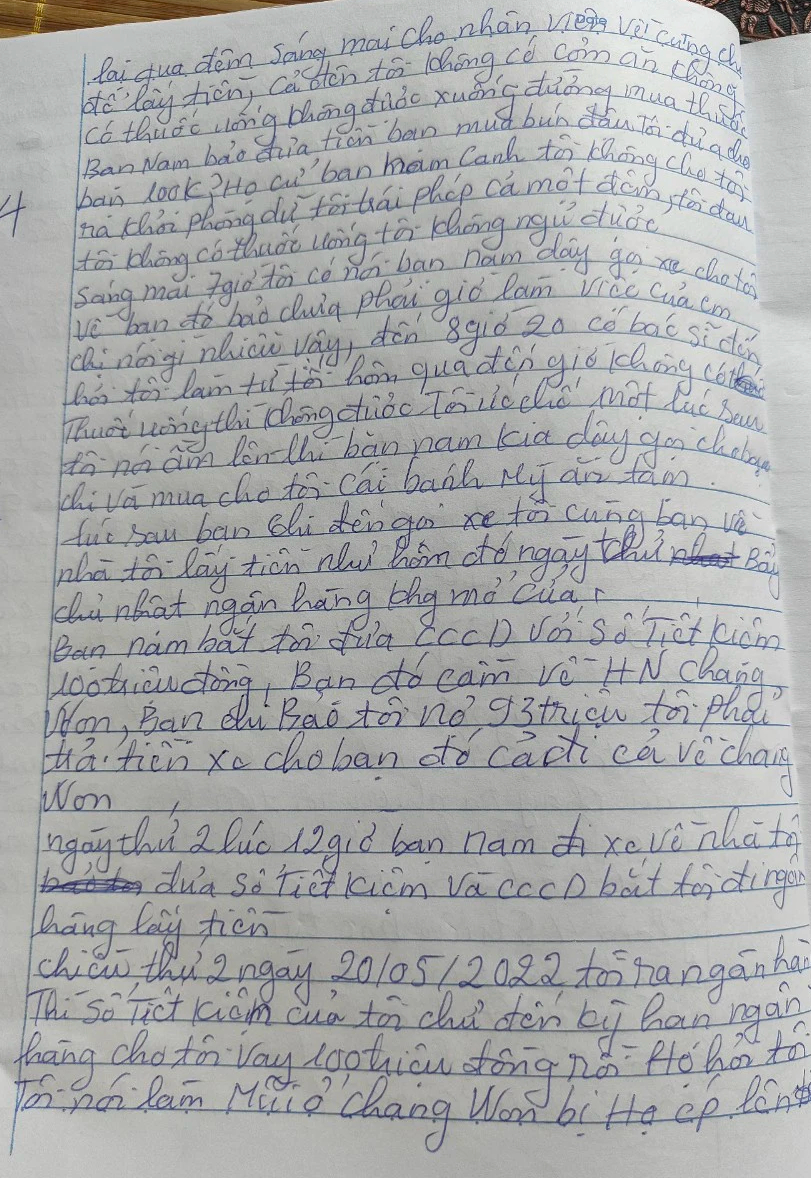 lại qua đêm sáng mai cho nhân viên về cùng chị
để lấy tiền, cả đên tôi không có cơm ăn không
có thuốc uống không được xuống đường mua thuốc
Bạn Nam bảo đưa tiền bạn mua bún đâu Tôi đưa cho
bạn 100k? Họ cử bạn canh tôi không cho tôi
ra khỏi phòng dữ tôi trái phép cả một đêm, tôi đau
tôi không có thuốc uống tôi không ngủ được
4
Sáng mai 7giờ tôi có nói bạn nam dây gọi xe cho tôi
về bạn đó bảo chưa phải giờ làm việc của em
chị nói gì nhiều vậy, đến 8giờ 20 có bác sĩ đến
hỏi tôi làm từ tối hôm qua đến giờ không có
Thuốc uống thì không được Tôi ức chế một lúc sau
tôi nói ầm lên thì bạn nam kia dây gọi cho bạn
chi và mua cho tôi cái bánh Mỳ ăn tạm.
lúc sau bạn Chi đến gọi xe tôi cùng bạn về
nhà tôi lấy tiền như hôm đó ngày thứ Bẩy
chủ nhật ngân hàng khg mở cửa,
Bạn nám bắt tôi đưa CCCD với Sổ Tiết kiêm
100triệu đồng, Bạn đó cầm về HN Chang
Won, Bạn chi Bảo tôi nợ 93triệu tôi phải
trả tiền xe cho bạn đó cả đi cả về chang
Won
ngày thứ 2 lúc 12giờ bạn nam đi xe về nhà tôi
đưa sổ Tiết kiêm và CCCD bắt tôi đi ngân
hàng lấy tiền
chiều thứ 2 ngày 20/05/2022 tôi ra ngân hàn
Thì sổ Tiết kiệm của tôi chử đến kỳ hạn ngân
hàng cho tôi vay 100triệu đồng rồi Họ hỏi tôi
Tôi nói làm Mũi ở Chang Won bị Họ ép lên